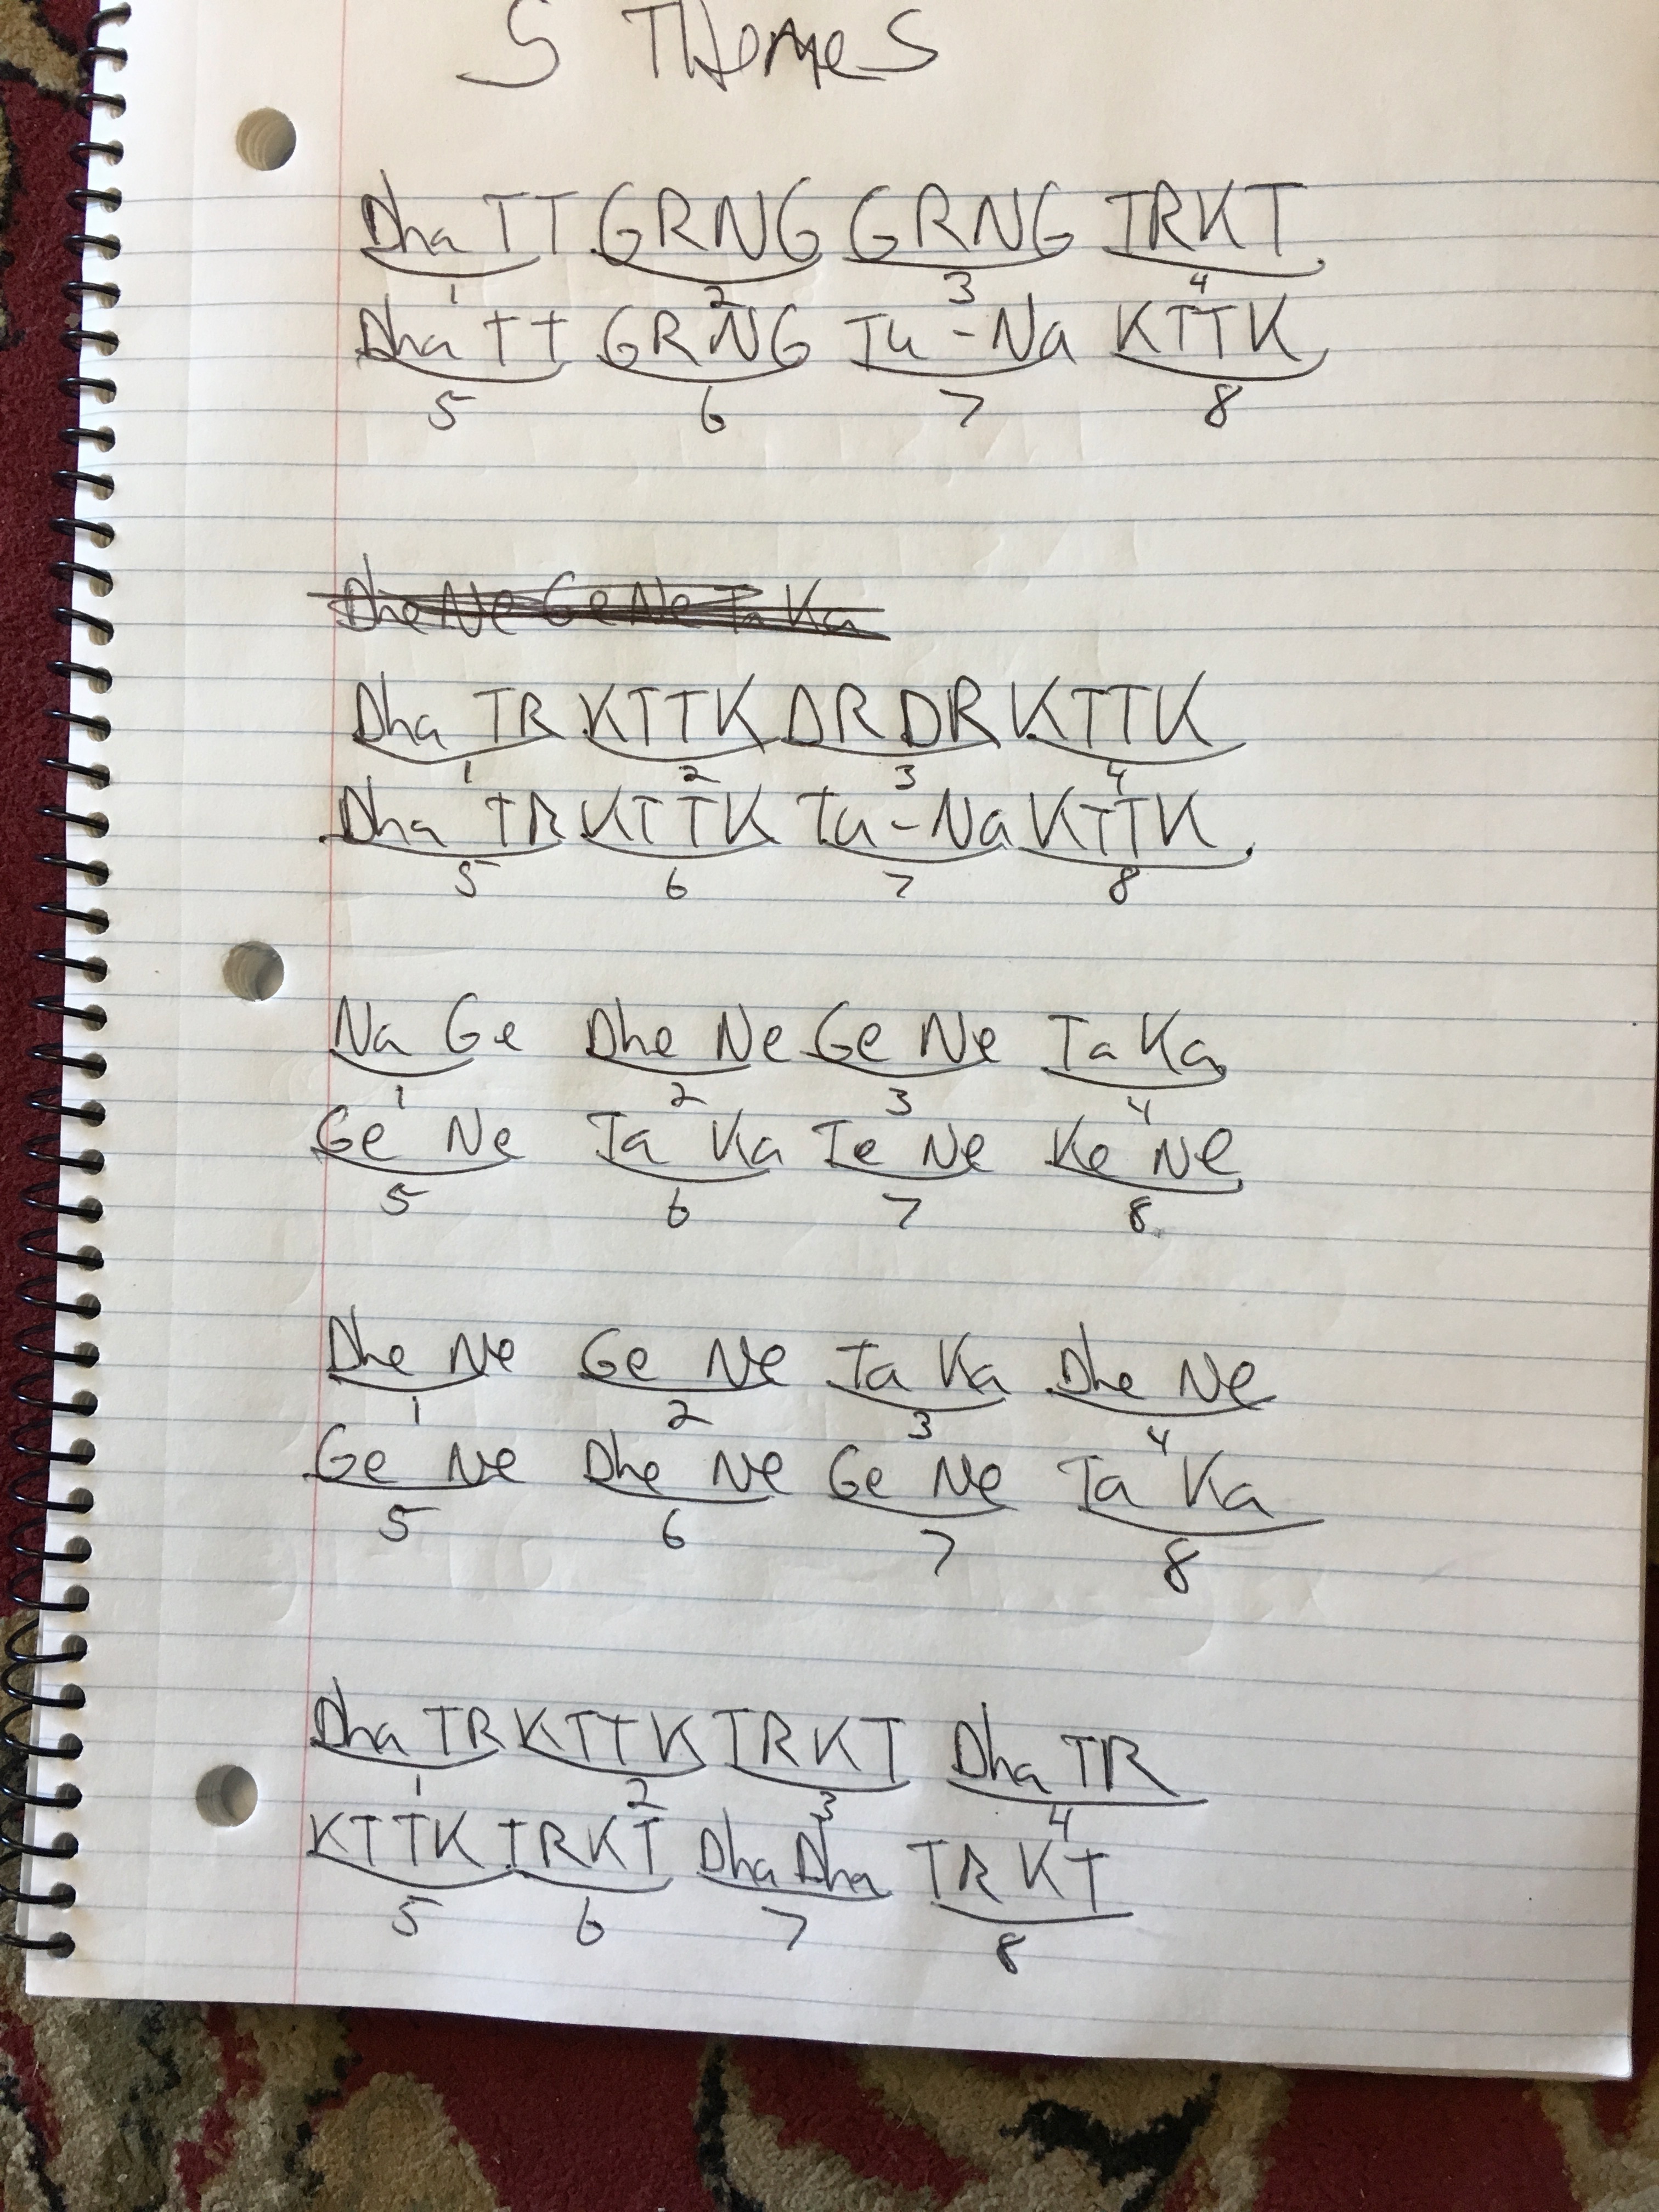 5 Themes
Dha TT GRNG GRNG TRKT
1 2 3 4
Dha TT GRNG Tu-Na KTTK
5 6 7 8
Dhe Ne Ge Ne Ta Ka
Dha TR KTTK DRDR KTTK
1 2 3 4
Dha TR KTTK Tu-Na KTTK
5 6 7 8
Na Ge Dhe Ne Ge Ne Ta Ka
1 2 3 4
Ge Ne Ta Ka Te Ne Ke Ne
5 6 7 8
Dhe Ne Ge Ne Ta Ka Dhe Ne
1 2 3 4
Ge Ne Dhe Ne Ge Ne Ta Ka
5 6 7 8
Dha TR KTTK TRKT Dha TR
1 2 3 4
KTTK TRKT Dha Dha TRKT
5 6 7 8